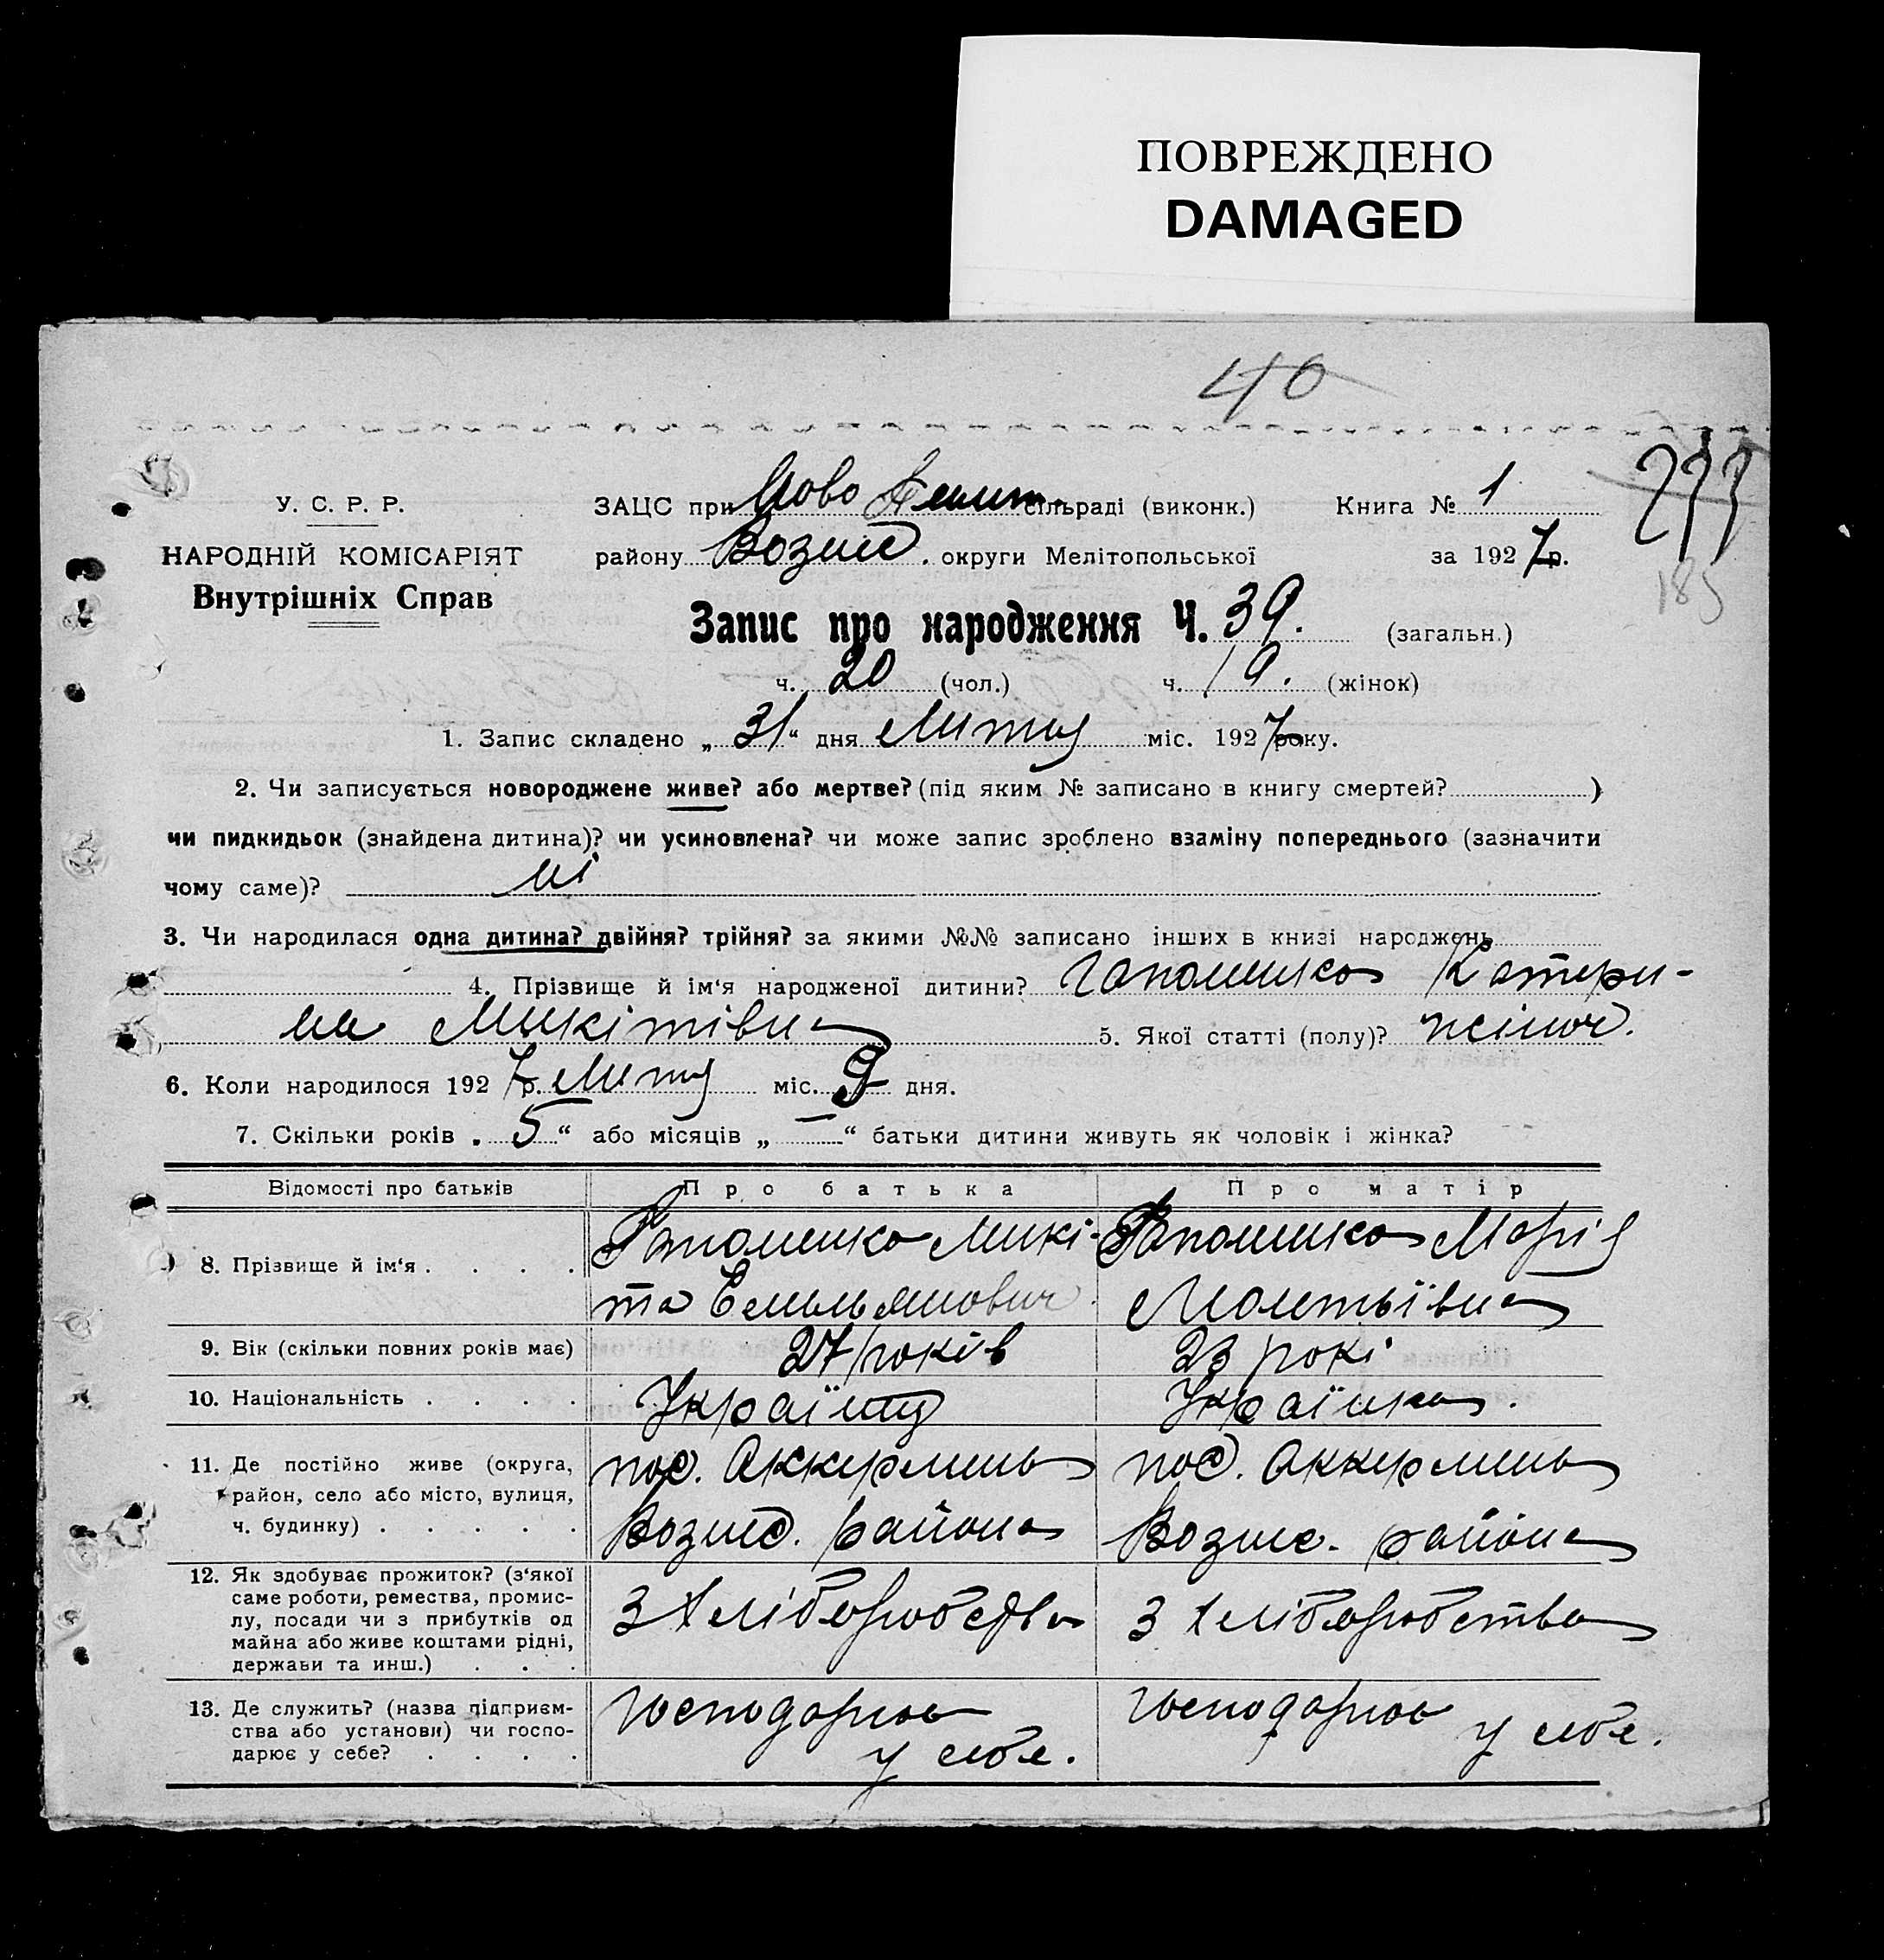 ПОВРЕЖДЕНО
DAMAGED
40
У. С. Р. Р.
НАРОДНІЙ КОМІСАРІЯТ
Внутрішніх Справ
ЗАЦС при Ново сільраді (виконк.) Книга № 1
277
району Возне . округи Мелітопольської за 1927 р.
185
Запис про народження Ч. 39. (загальн.)
ч. 20 (чол.) ч. 19. (жінок)
1. Запис складено „ 31 “ дня Лютого міс. 1927 року.
2. Чи записується новороджене живе? або мертве? (під яким № записано в книгу смертей? )
чи пидкидьок (знайдена дитина)? чи усиновлена? чи може запис зроблено взаміну попереднього (зазначити
чому саме)? ні
3. Чи народилася одна дитина? двійня? трійня? за якими №№ записано інших в книзі народжень
4. Прізвище й ім‘я народженої дитини? Гапоненко Катери-
на Микітівна 5. Якої статті (полу)? жіноч.
6. Коли народилося 1927 р. міс. 9 дня.
7. Скільки років „ 5 “ або місяців „ — “ батьки дитини живуть як чоловік і жінка?
Відомості про батьків Про батька Про матір
8. Прізвище й ім‘я . . . . Гапоненко Микі- Гапоненко Марія
та Емельянович
9. Вік (скільки повних років має) 27 років 23 рокі
10. Національність . . . . Українец Українка.
11. Де постійно живе (округа, пос. Аккермень пос. Аккермень
район, село або місто, вулиця,
ч. будинку) . . . . . Вознес. района Вознес. района
12. Як здобуває прожиток? (з‘якої
саме роботи, ремества, промис- З хліборобства З хліборобства
лу, посади чи з прибутків од
майна або живе коштами рідні,
держави та инш.) . . .
13. Де служить? (назва підприєм- господарює господарює
ства або установи) чи госпо- у себе. у себе.
дарює у себе? . . . .